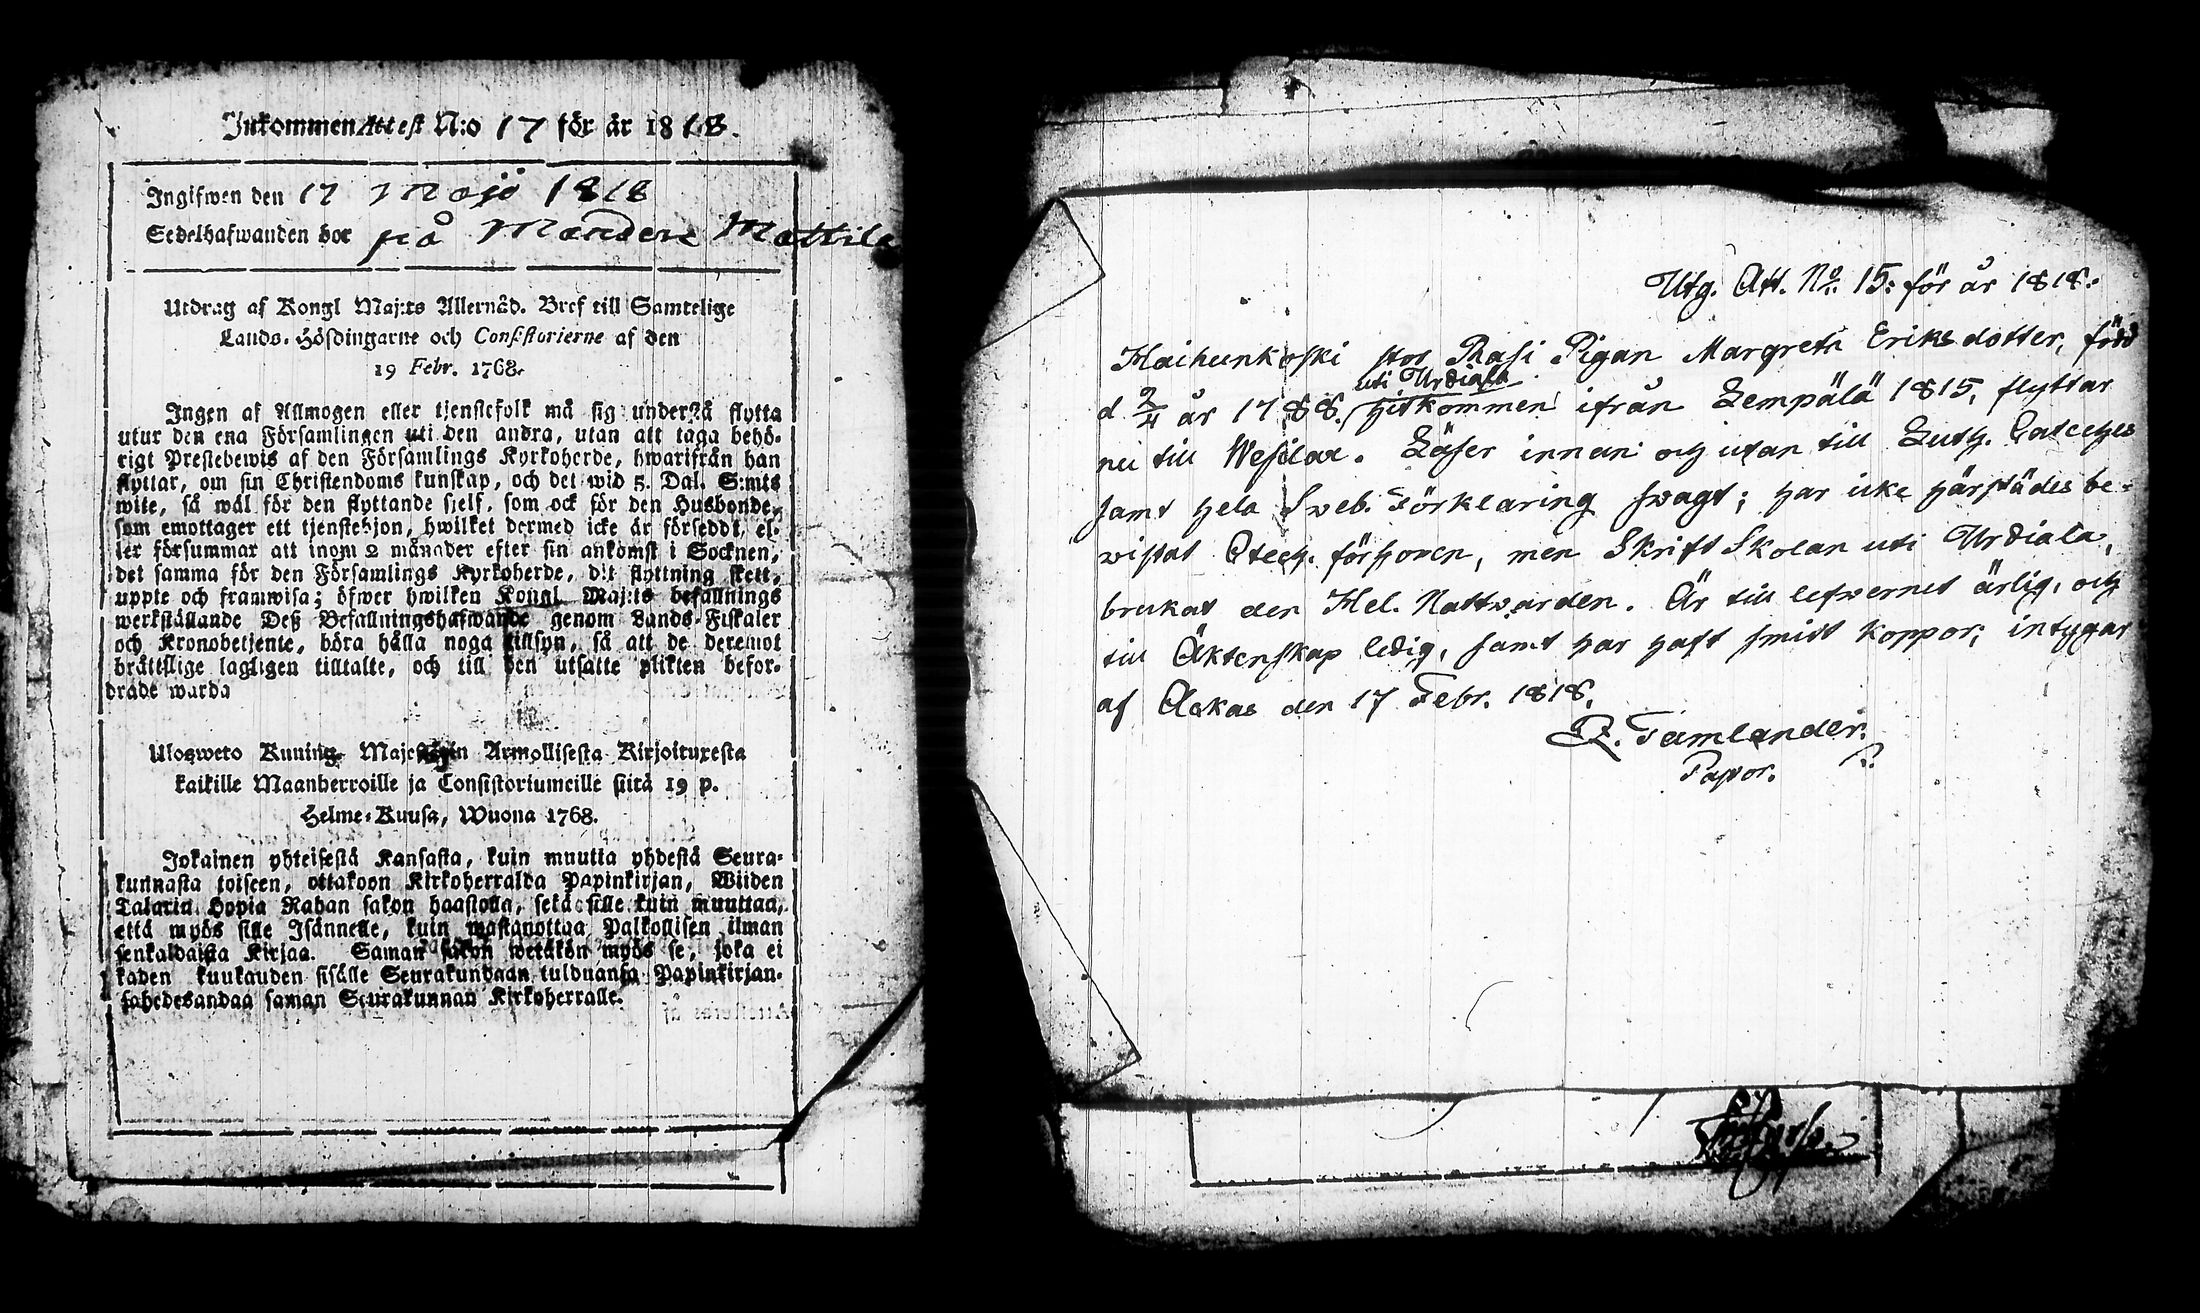 Inkommen Attest N:o 17 för år 1818.
Ingifwen den 17 Maji 1818
Sedelhafwanden bor på Mandere Mattila
Utdrag af Kongl Maj:ts Allernåd. Bref till Samtelige
Lands-Höfdingarne och Consistorierne af den
19 Febr. 1768.
Ingen af Allmogen eller tjenstefolk må sig understå flytta
utur den ena Församlingen uti den andra, utan att taga behö-
rigt Prestebewis af den Församlings Kyrkoherde, hwarifrån han
flyttar, om sin Christendoms kunskap, och det wid 5. Dal. S:mts
wite, så wäl för den flyttande sjelf, som ock för den Husbonde,
som emottager ett tjenstehjon, hwilket dermed icke är förseddt, el-
ler försummar att inom 2 månader efter sin ankomst i Socknen,
det samma för den Församlings Kyrkoherde, dit flyttning skett,
uppte och framwisa; öfwer hwilken Kongl Maj:ts befallnings
werkställande Deß Befallningshafwande genom Lands-Fiskaler
och Kronobetjente, böra hålla noga tillsyn, så att de deremot
bråttslige lagligen tilltalte, och till den utsatte plikten befor-
drade warda
Ulosweto Kuning. Majestätin Armollisesta Kirjoituxesta
kaikille Maanherroille ja Consistoriumeille siitä 19 p.
Helme-Kuusa, Wuona 1768.
Jokainen yhteisestä Kansasta, kuin muutta yhdestä Seura-
kunnasta toiseen, ottakoon Kirkoherralda Papinkirjan, Wiiden
Talarin Hopia Rahan sakon haastolla, sekä sille kuin muuttaa,
että myös sille Isännelle, kuin wastanottaa Palkollisen ilman
senkaldaista Kirjaa. Saman sakon wetäkön myös se, joka ei
kahden kuukauden sisälle Seurakundaan tulduansa Papinkirjan-
sahedesandaa saman Seurakunnan Kirkoherralle.
Utg. Att. No. 15: för år 1818.
Haihunkoski stor Rasi Pigan Margreta Eriksdotter, född
uti Urdiala
d 2/4 år 1788. hitkommen ifrån Lempälä 1815, flyttar
nu till Wesilax. Läser innan och utan till Luth. Cateches
samt hela Sweb. Förklaring swagt; har icke härstädes be-
wistat Ctech. förhören, men Skrift Skolan uti Urdiala,
brukat den Hel. Nattwarden. Är till lefwernet ärlig, och
till Äktenskap ledig, samt har haft smitt koppor; intygar
af Ackas den 17 Febr. 1818.
Tamlander.
Pastor.